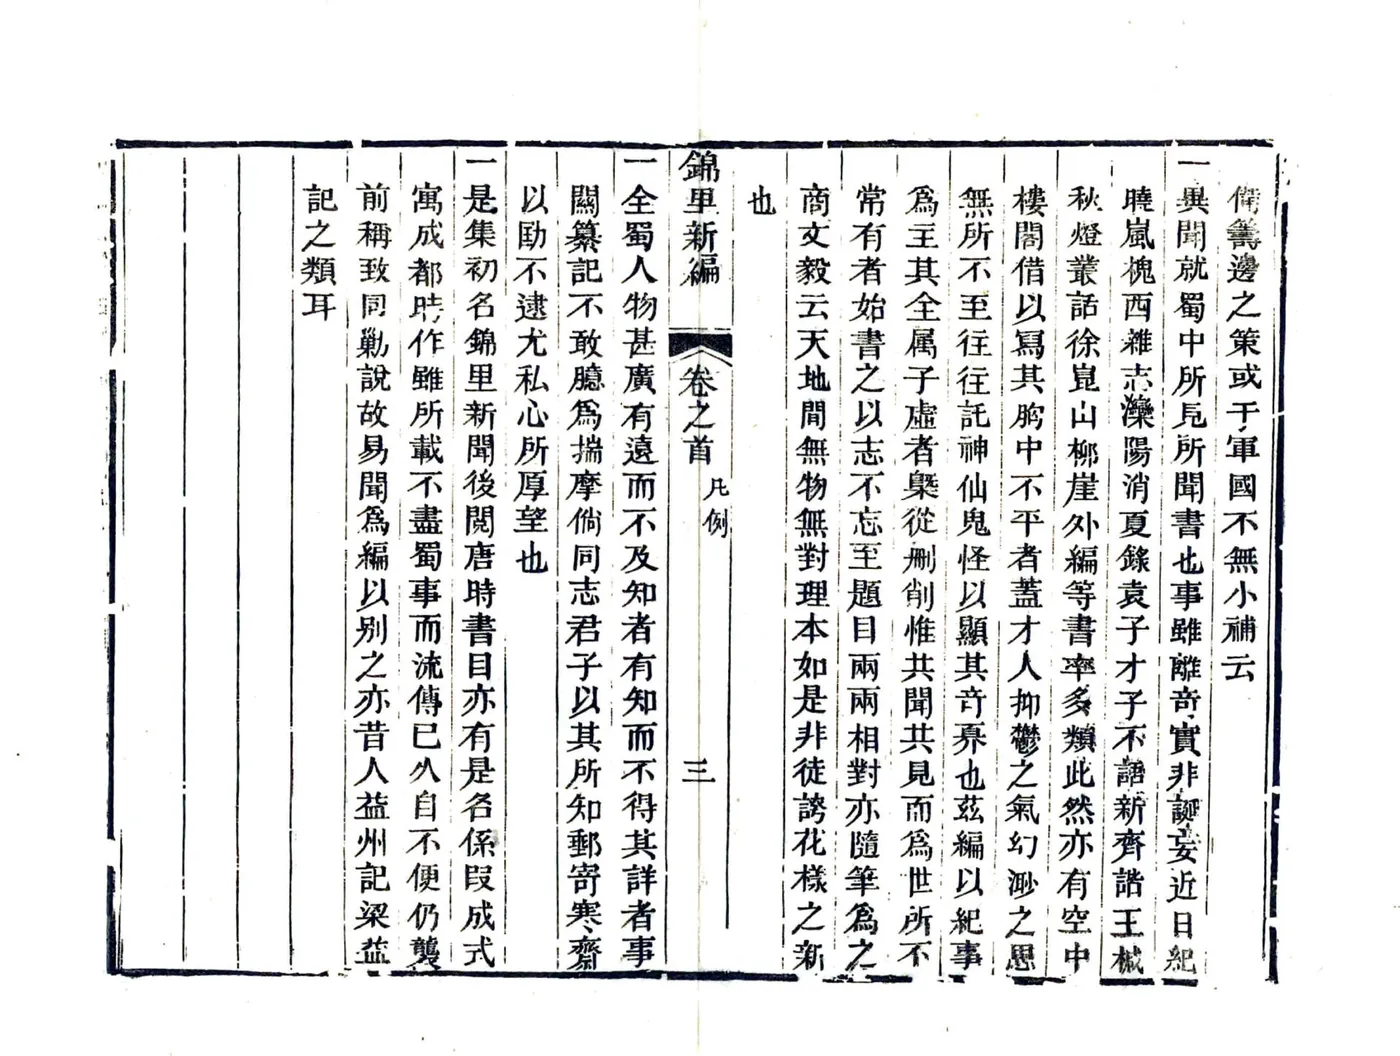 備籌邊之策或于軍國不無小補云
一異聞就蜀中所見所聞書也事雖離奇實非誕妄近日紀
曉嵐槐西雜志灤陽消夏錄袁子才子不語新齊諧王椷
秋燈叢話徐崑山柳崖外編等書率多類此然亦有空中
樓閣借以寫其胸中不平者蓋才人抑鬱之氣幻渺之思
無所不至往往託神仙鬼怪以顯其奇異也茲編以紀事
爲主其全属子虛者槩從刪削惟共聞共見而爲世所不
常有者始書之以志不忘至題目兩兩相對亦隨筆爲之
商文毅云天地間無物無對理本如是非徒誇花樣之新
也
錦里新編 卷之首 凡例 三
一全蜀人物甚廣有遠而不及知者有知而不得其詳者事
關纂記不敢臆爲揣摩倘同志君子以其所知郵寄寒齋
以勖不逮尤私心所厚望也
一是集初名錦里新聞後閱唐時書目亦有是名係段成式
寓成都時作雖所載不盡蜀事而流傳已久自不便仍襲
前稱致同勦說故易聞爲編以别之亦昔人益州記梁益
記之類耳